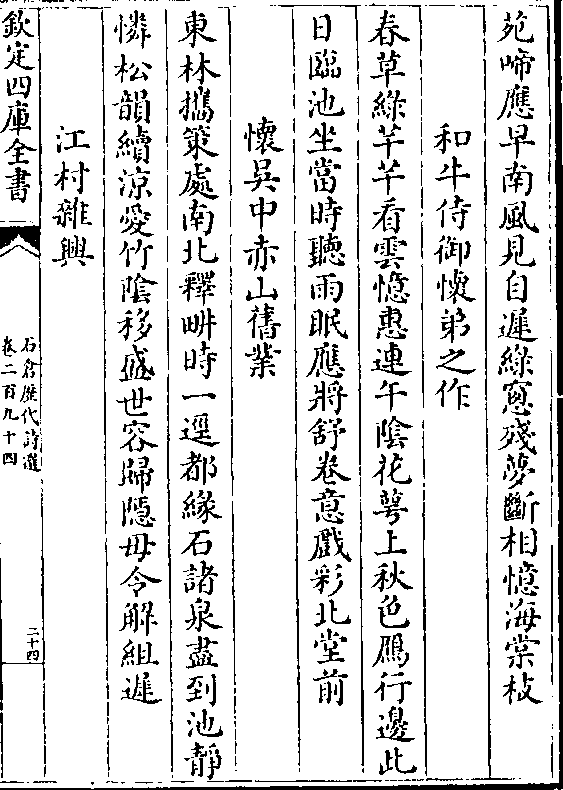 苑啼應早南風見自遲綠窻殘夢斷相憶海棠枝
和牛侍御懐弟之作
春草綠芊芊看雲憶惠連午陰花萼上秋色鴈行邊此
日臨池坐當時聽雨眠應將舒卷意戲彩北堂前
懐吳中赤山舊業
東林攜策處南北釋畊時一逕都緣石諸泉盡到池靜
憐松韻續涼愛竹陰移盛世容歸隱毋令解組遲
江村雜興
欽定四庫全書
石倉歴代詩選
卷二百九十四
二十四